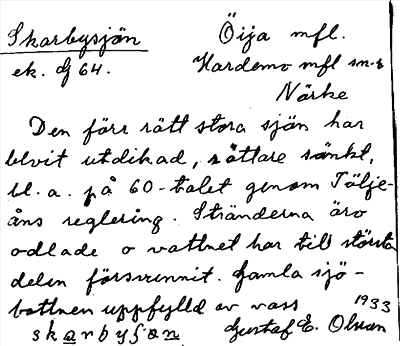 Skarbysjön Öija mfl.
ek. G 64. Hardemo mfl sn-r
Närke
Den förr rätt stora sjön har
blvit utdikad, rättare sänkt,
bl. a. på 60-talet genom Tälje-
åns reglering. Stränderna äro
odlade o vattnet har till största
delen försvunnit. Gamla sjö-
bottnen uppfylld av vass
1933
skarbysøn Gustaf E. Olsson